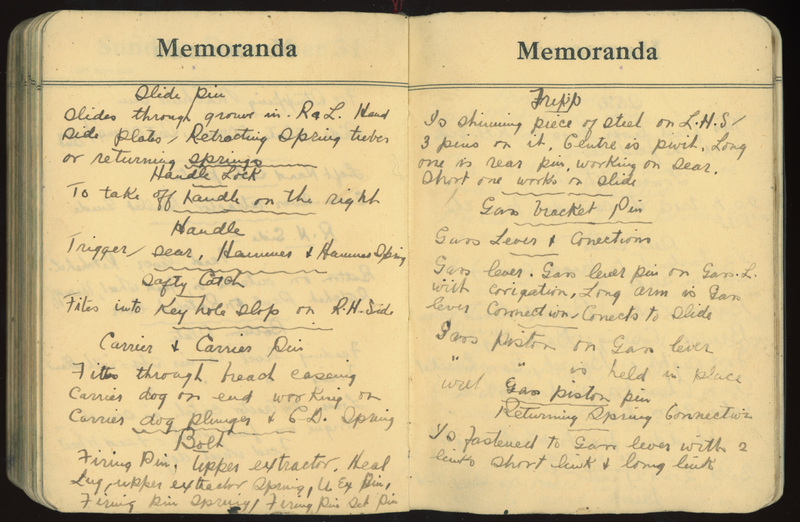 Memoranda
Slide pin
Slides through groves in R & L. Hand
side plates / Retracting spring tubes
or returning springs
Handle Lock
To take off handle on the right
Handle
Trigger / sear, Hammer & Hammer Spring
Safty Catch
Fites into Key hole slop on R.H. Side
Carrier & Carrier Pin
Fites through breach casing
Carrier dog on end working on
Carrier dog plunger & C.D. Spring
Bolt
Firing Pin, upper extractor, Heal
Lug, upper extractor spring, U Ex Pin,
Firing pin spring, Firing Pin Set Pin
Memoranda
Tripp
Is shinning piece of steel on L.H.S/
3 pins on it, Centre is pivit, Long
one is rear pin, working on sear.
Short one works on slide
Gass bracket Pin
Gass Lever & Conections
Gass lever. Gass lever pin on Gass. L.
with corigation, Long arm is Gass
lever Connection - Conects to slide
Gass piston on Gass lever
" " is held in place
with Gass piston pin
Returning Spring Connection
Is fastened to Gass lever with 2
links short link & long link